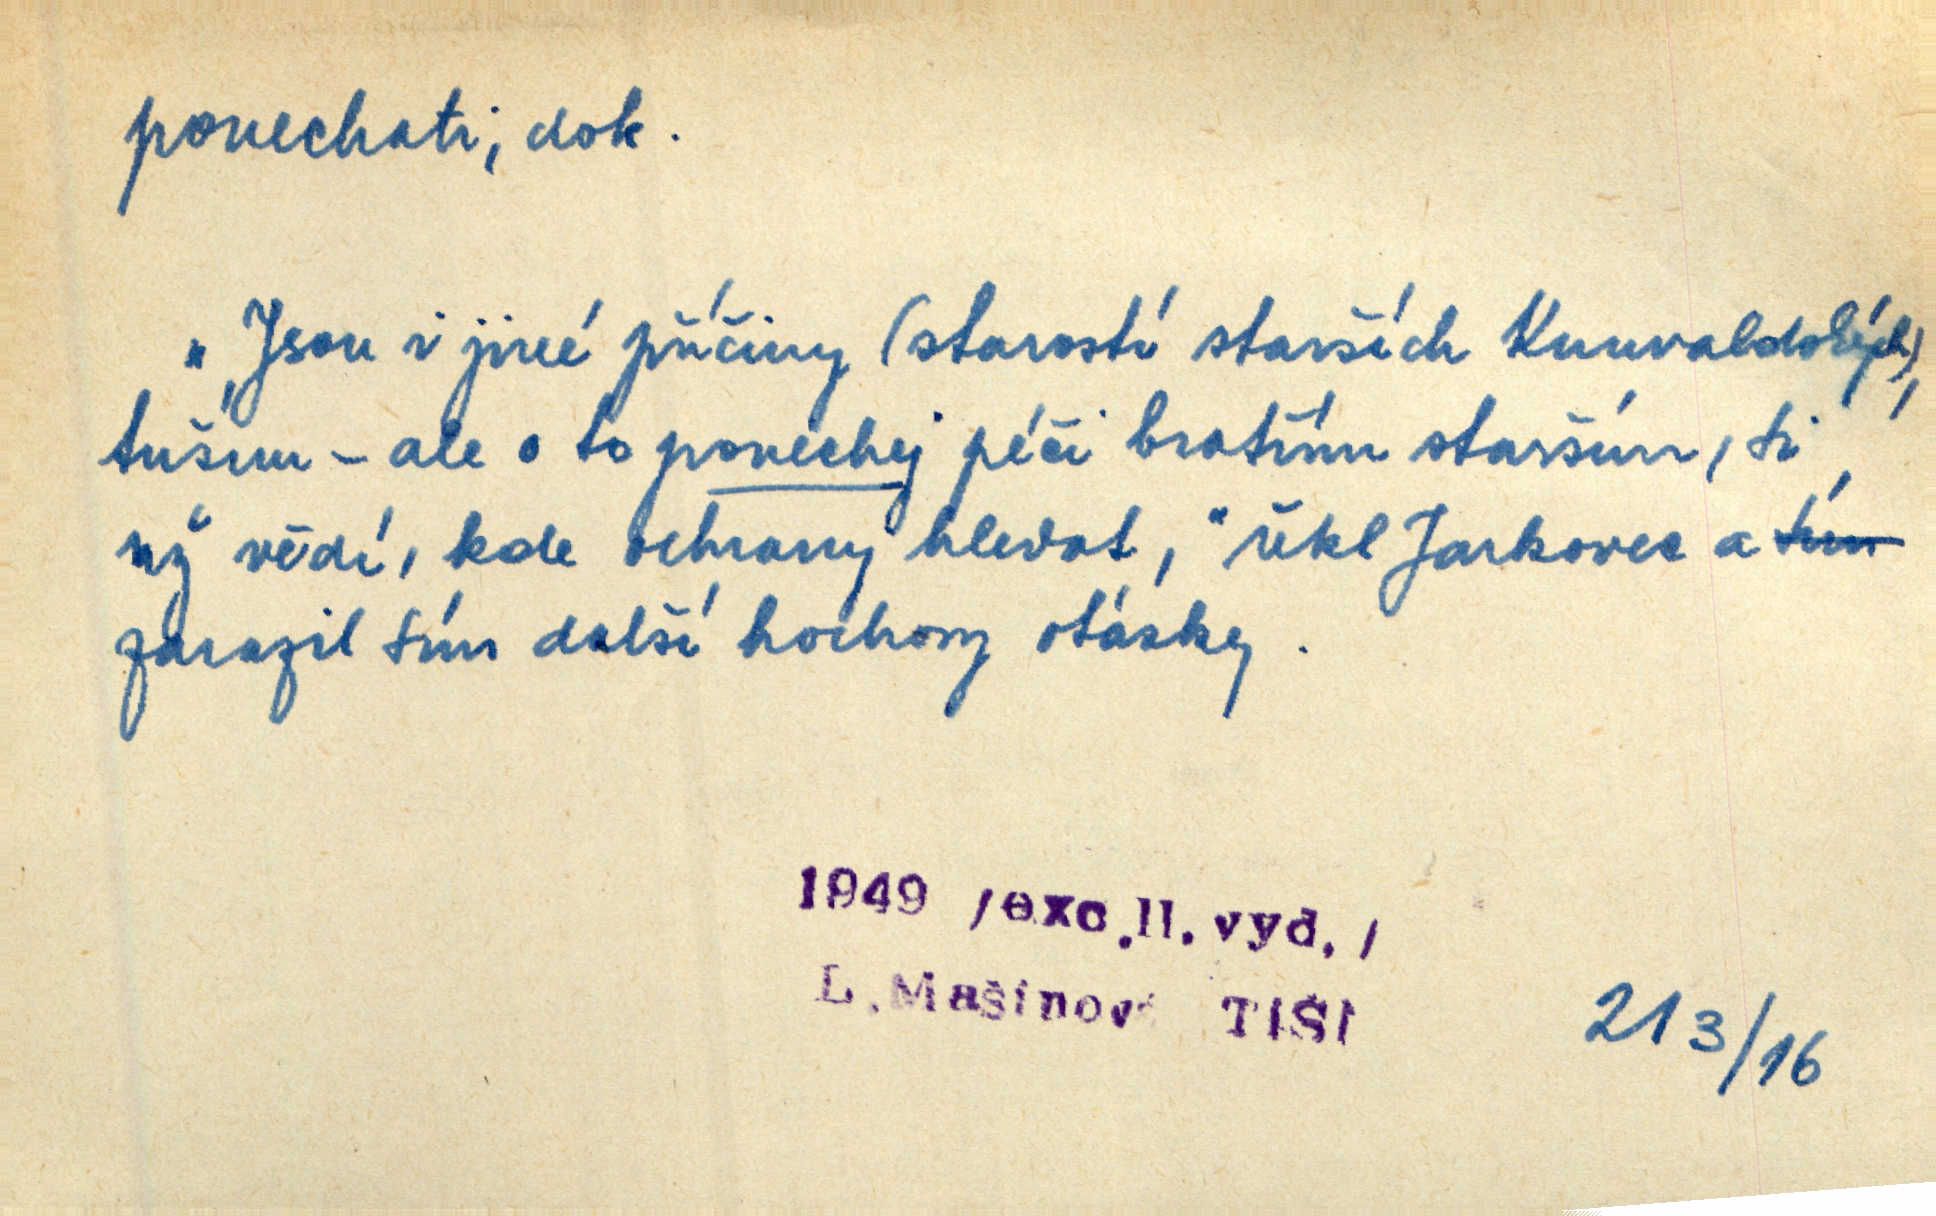 ponechati, dok.
"Jsou i jiné příčiny (starostí starších Kunvaldských),
tuším - ale o to ponechej péči bratřím starším, ti
už vědí, kde ochrany hledat," řekl Jarkovec a tím
zarazil tím další hochovy otázky.
1949 /exc.II. vyd./
L. Mašínová TIŠÍ
213/16